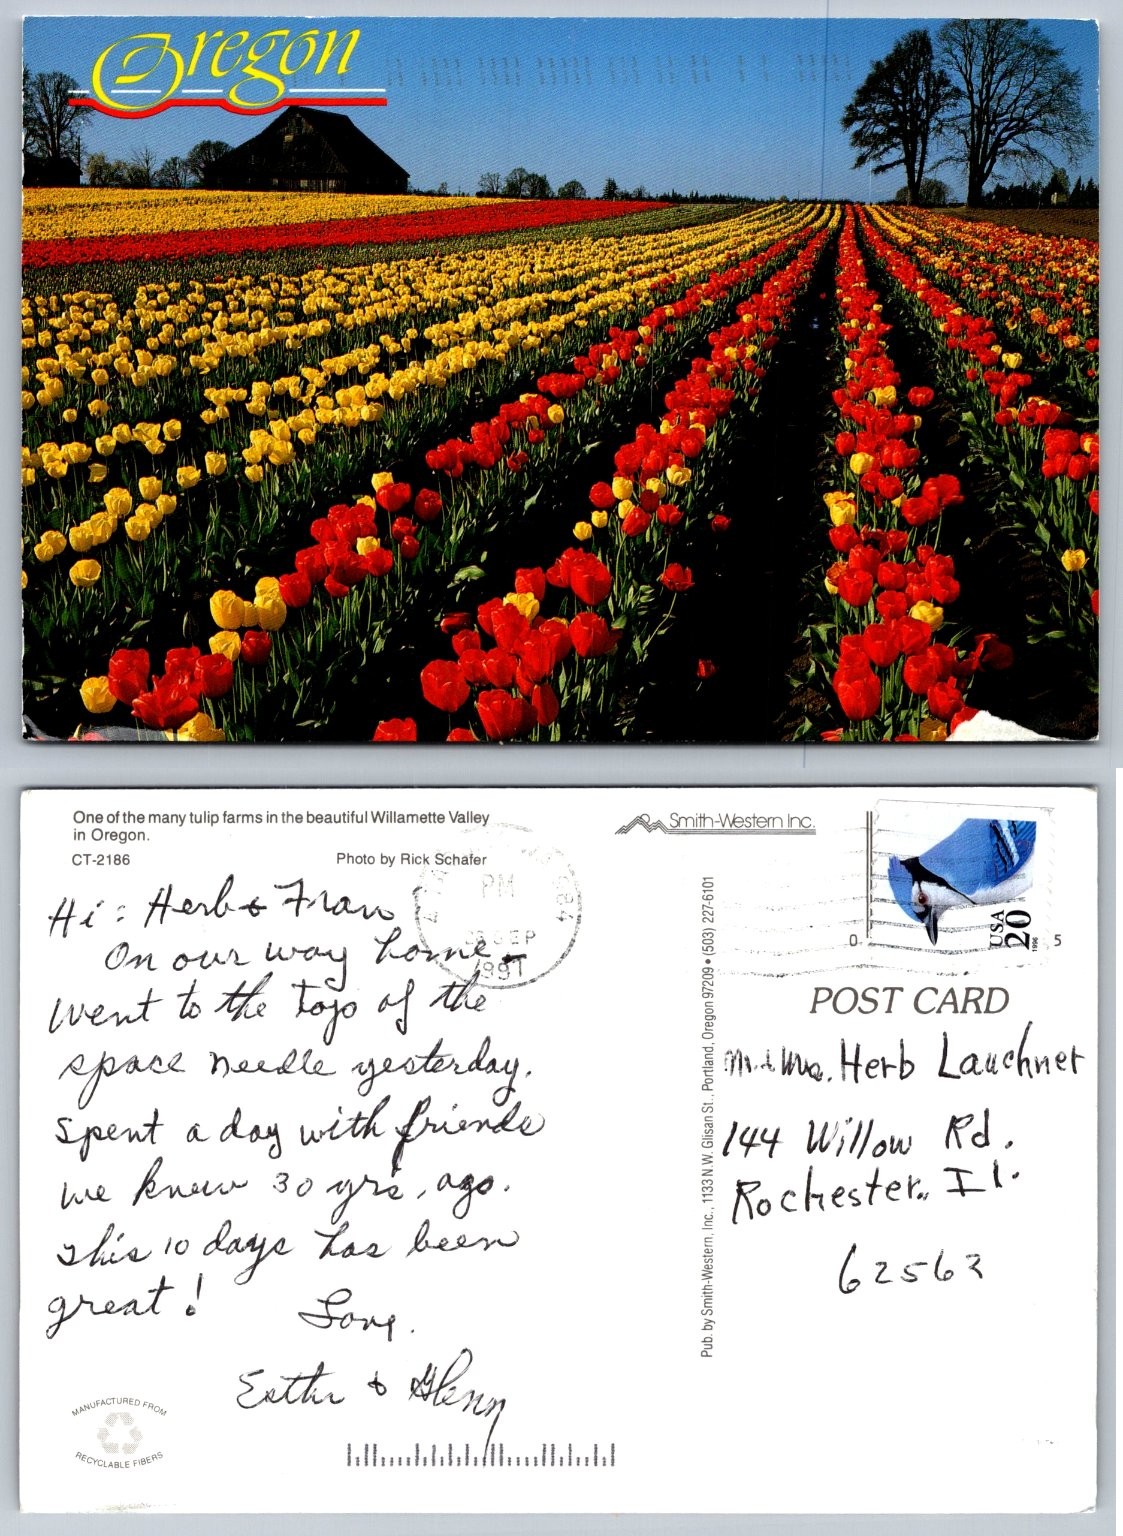 Oregon
One of the many tulip farms in the beautiful Willamette Valley
in Oregon.
CT-2186
Photo by Rick Schafer
Smith-Western Inc.
PM
SEP
1997
USA
20
1996
0
5
POST CARD
Hi: Herb & Fran
On our way home -
went to the top of the
space needle yesterday.
spent a day with friends
we knew 30 yrs, ago.
This 10 days has been
great!
Love.
Esther & Glenn
Mr. & Mrs. Herb Lauchner
144 Willow Rd.
Rochester, Il.
62563
Pub. by Smith-Western, Inc., 1133 N.W. Glisan St., Portland, Oregon 97209 • (503) 227-6101
MANUFACTURED FROM
RECYCLABLE FIBERS